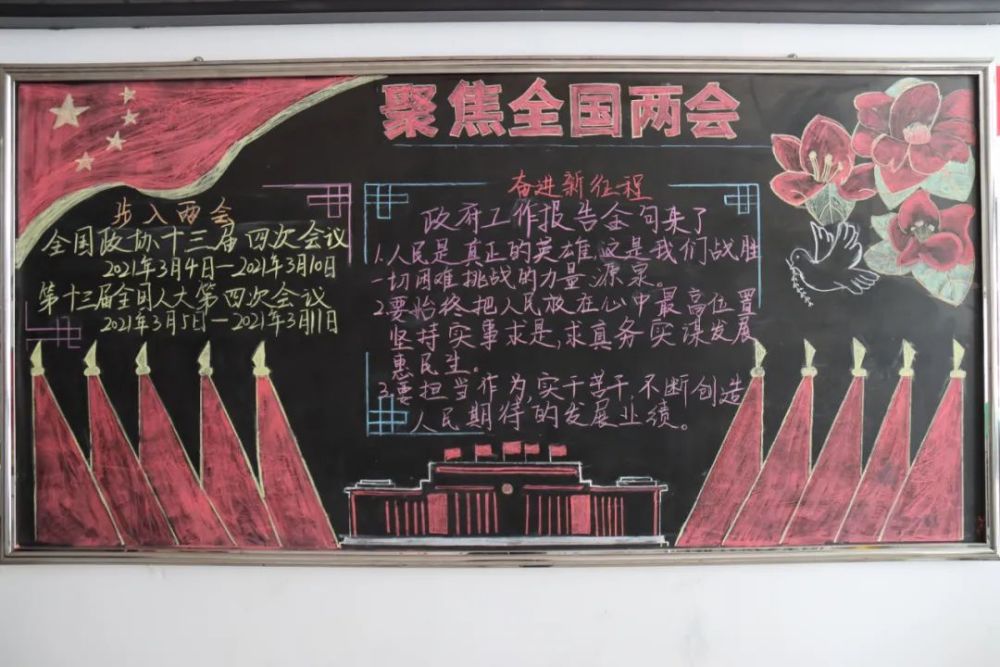 聚焦全国两会
步入两会
全国政协十三届四次会议
2021年3月4日—2021年3月10日
第十三届全国人大第四次会议
2021年3月5日—2021年3月11日
奋进新征程
政府工作报告金句来了
1.人民是真正的英雄,这是我们战胜
一切困难挑战的力量源泉。
2.要始终把人民放在心中最高位置
坚持实事求是,求真务实谋发展
惠民生。
3.要担当作为,实干苦干,不断创造
人民期待的发展业绩。